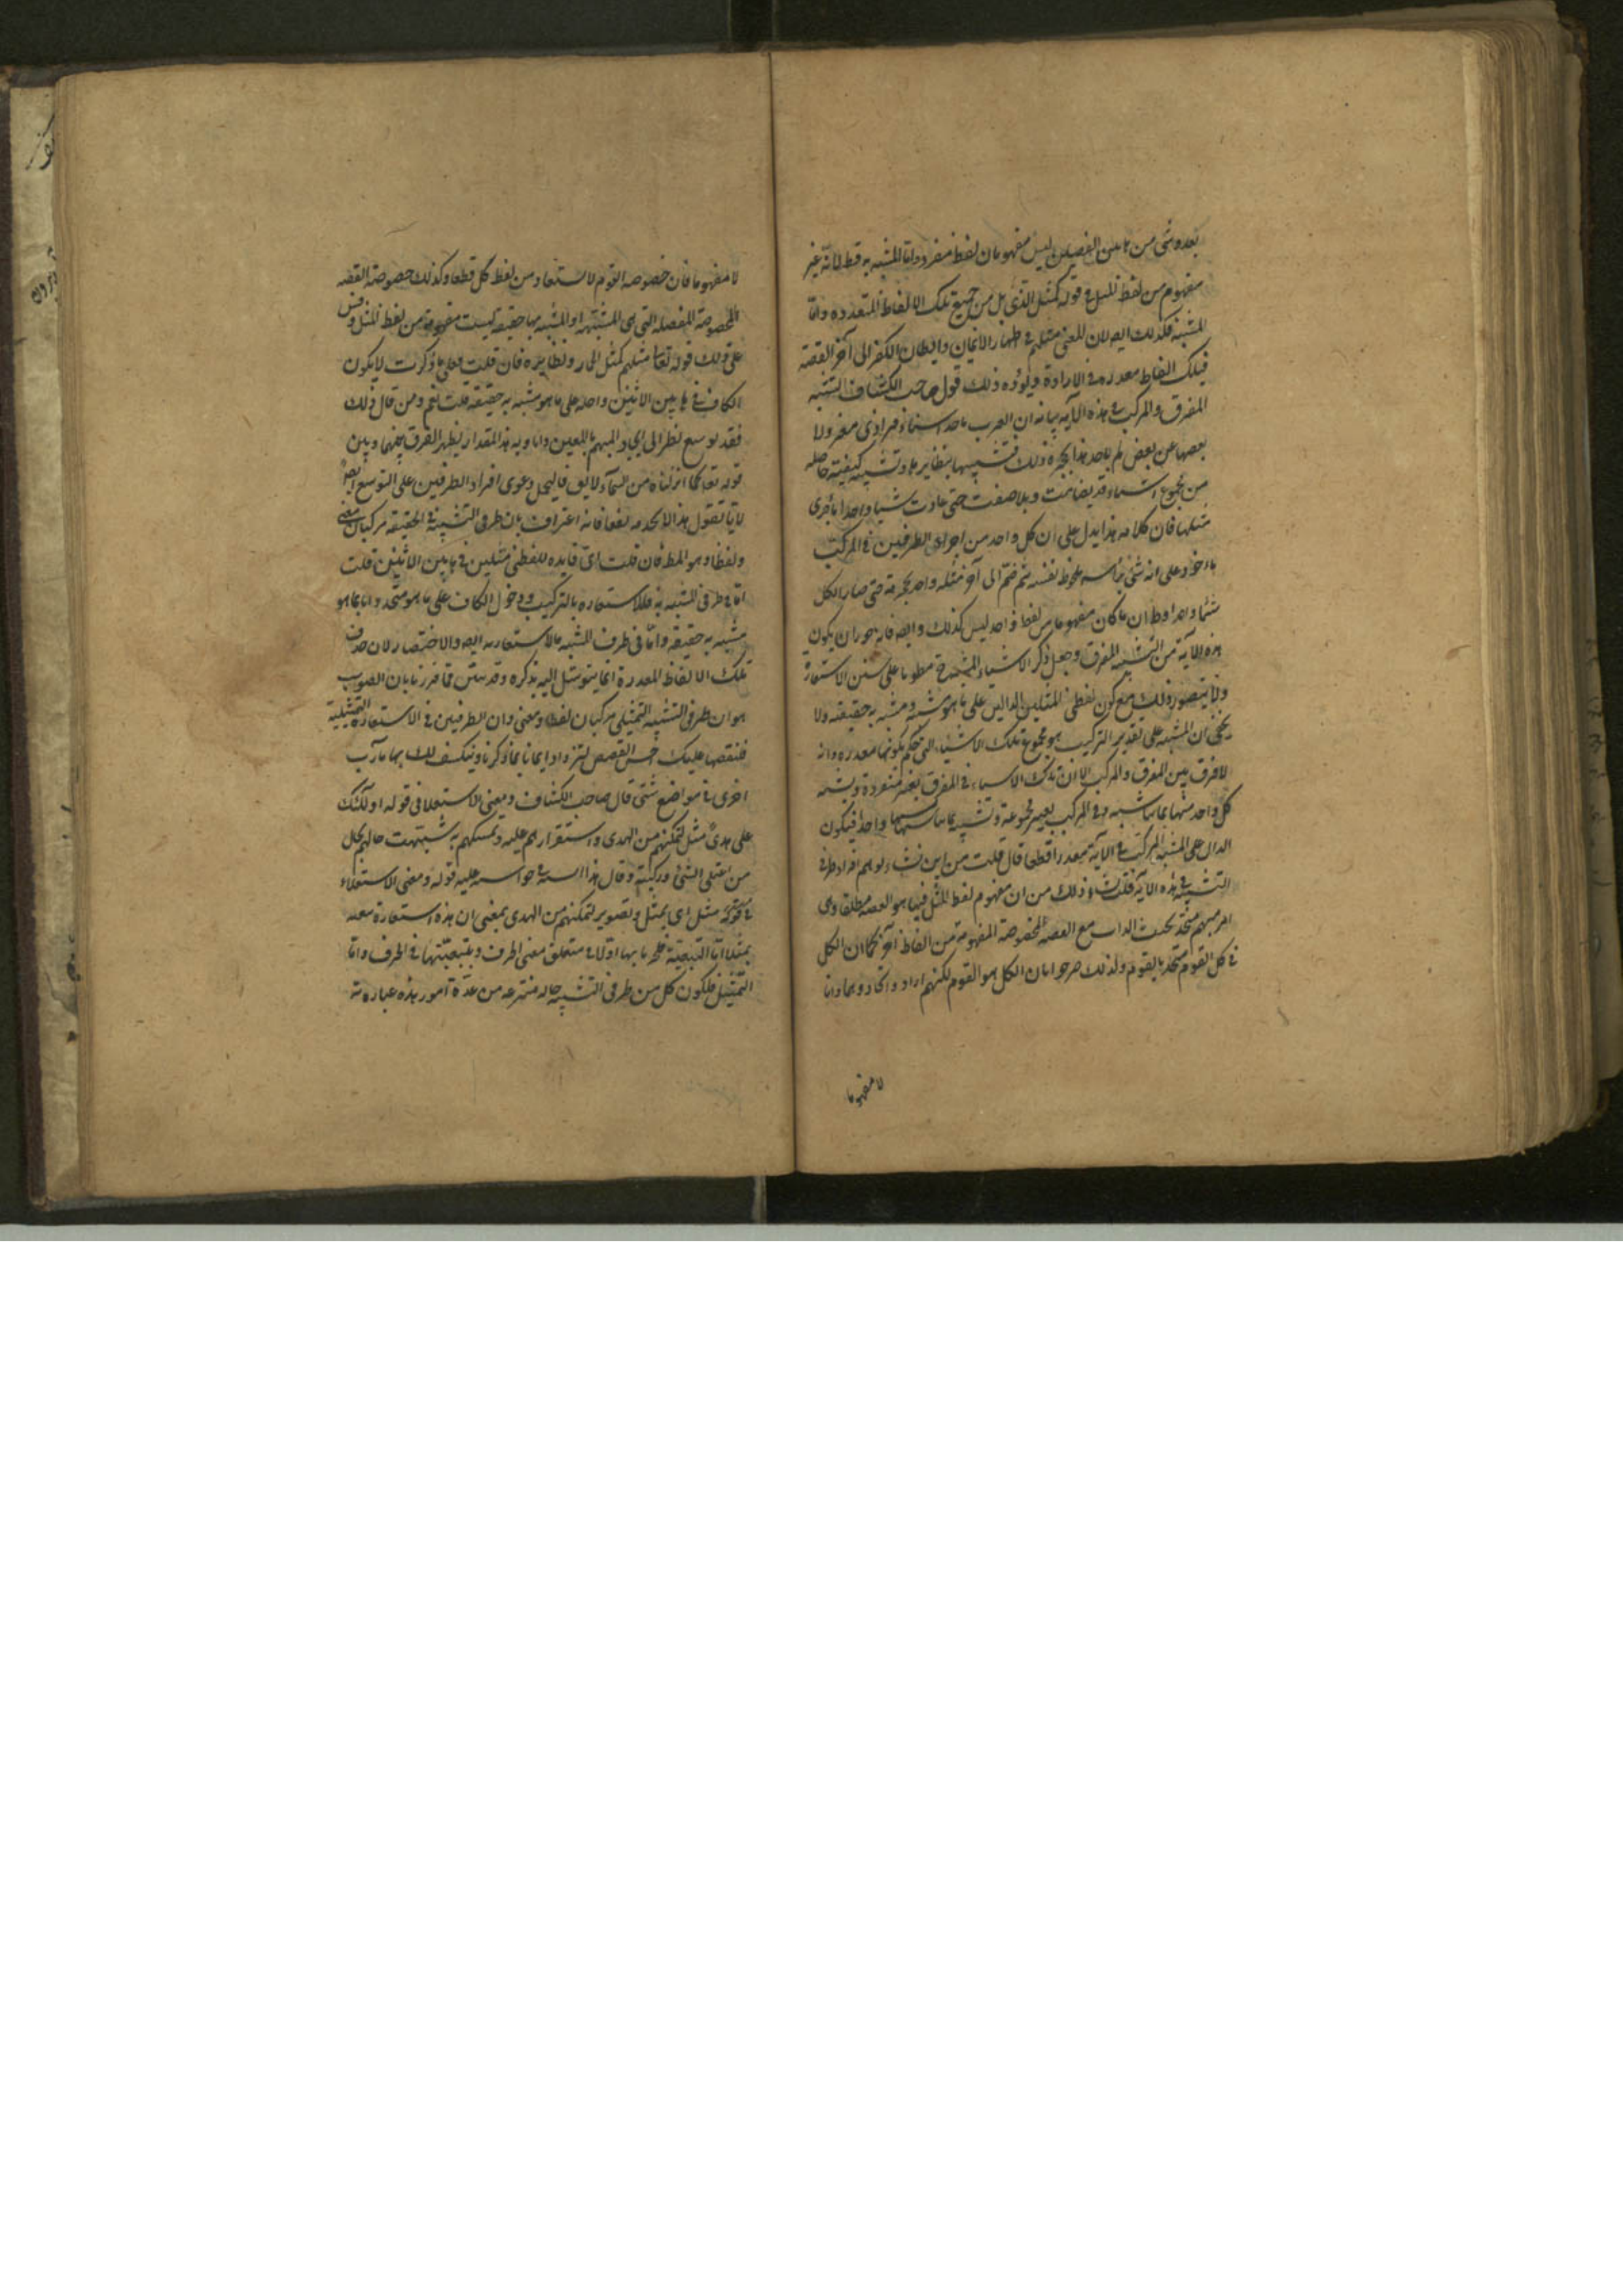 بعد وشى من هاتين القصتين ليس مفهومان لفظ مفرد واما المشبه به قط لانه غير
مفهوم من لفظ المثل فى قوله كمثل الذى بل من جميع تلك الالفاظ المتعدده واما
المشبه فكذلك ايضا لان المعنى مثلهم فى اظهار الايمان وابطان الكفر الى آخر القصه
فتلك الفاظ مقدره فى الارادة ويؤيده ذلك قول صاحب الكشاف التشبيه
المفرق والمركب فى هذه الآيه بيانه ان العرب تاخذ اشياء فرادى معزولا
بعضها عن بعض لم ياخذ هذا بحجزة ذلك فتشبهها بنظايرها وتشبه كيفية حاصله
من مجموع اشياء قد تضامت وتلاصقت حتى عادت شيا واحدا باخرى
مثلها فان كلامه هذا يدل على ان كل واحد من اجزاء الطرفين فى المركب
ماخوذ على انه شئ برأسه ملحوظ بنفسه ثم ضم الى آخر مثله واحد بحجزته حتى صار الكل
شئا واحدا وظ ان ما كان مفهوما من لفظ واحد ليس كذلك وايضا فانه جوز ان يكون
هذه الآية من التشبيه المفرق وجعل ذكر الاشياء المشبهة مطويا على سنن الاستعارة
ولا يتصور ذلك مع كون لفظى المثلين الدالين على ما هو مشبه ومشبه به حقيقة ولا
يخفى ان المشبه على تقدير التركيب هو مجموع تلك الاشياء التى حكم بكونها مقدره وانه
لا فرق بين المفرق والمركب الا ان تلك الاشياء فى المفرق تعتبر منفردة ويشبه
كل واحد منها بما يشبه وفى المركب يعتبر مجموعة وتشبه بما يشابهها واحدا فيكون
الدال على المشبه المركب فى الآية مقدرا قطعا فان قلت من اين نشاء توهم افراد طرفى
التشبيه فى هذه الآية قلت نشاء ذلك من ان مفهوم لفظ المثل فيها هو القصه مطلقا وهى
امر مبهم متحد بحسب الذات مع القصه المخصوصة المفهومة من الفاظ اخر كما ان الكل
فى كل القوم متحد بالقوم ولذلك صرحوا بان الكل هو القوم لكنهم ارادوا اتحادهما ذاتا
لا مفهوما
لا مفهوما فان خصوصه القوم لا تستفاد من لفظ كل قطعا وكذلك خصوصة القصه
المخصوصة المفصله التى هى المشبهه او المشبه بها حقيقة ليست مفهومة من لفظ المثل وقس
على ذلك قوله تعا مثلهم كمثل الحمار ونظايره فان قلت فعلى ما ذكرت لا يكون
الكاف فى هاتين الآيتين داخله على ما هو مشبه به حقيقة قلت نعم ومن قال ذلك
فقد توسع نظرا الى ايجاد المبهم بالمعين ذاتا وبهذا المقدار يظهر الفرق بينهما وبين
قوله تعا كما انزلناه من السماء ولا يق فاليحل دعوى افراد الطرفين على التوسع ايضا
لانا نقول هذا لا يجديه نفعا فانه اعتراف بان طرفى التشبيه فى الحقيقه مركبان معنى
ولفظا وهو المط فان قلت اى فايده للفظى مثلين فى هاتين الآيتين قلت
اما فى طرف المشبه به فللاستعاره بالتركيب ودخول الكاف على ما هو متحد ذاتا بما هو
مشبه به حقيقة واما فى طرف المشبه فالاستعاره ايضا والاختصار لان حذف
تلك الالفاظ المقدرة انما يتوسل اليه بذكره وقد تبين مما قررنا بان الصواب
هو ان طرفى التشبيه التمثيلى مركبان لفظا ومعنى وان الطرفين فى الاستعارة التمثيلية
فنقصها عليك احسن القصص لتزداد ايمانا بما ذكرنا وينكشف لك بها مآرب
اخرى فى مواضع شتى قال صاحب الكشاف ومعنى الاستعلا فى قوله اولئك
على هدى مثل لتمكنهم من الهدى واستقرارهم عليه وتمسكهم به شبهت حالهم بحال
من اعتلى الشئ وركبه وقال هذا السند فى حواشيه عليه قوله ومعنى الاستعلاء
فى قوله مثل اى تمثل وتصوير لتمكنهم من الهدى بمعنى ان هذه استعارة تبعه
تمثلا اما التبعية فلجريانها اولا فى متعلق معنى الحرف وتبعيتها فى الحرف واما
التمثيل فلكون كل من طرفى التشبيه حاله منتزعه من عدة امور هذه عبارته